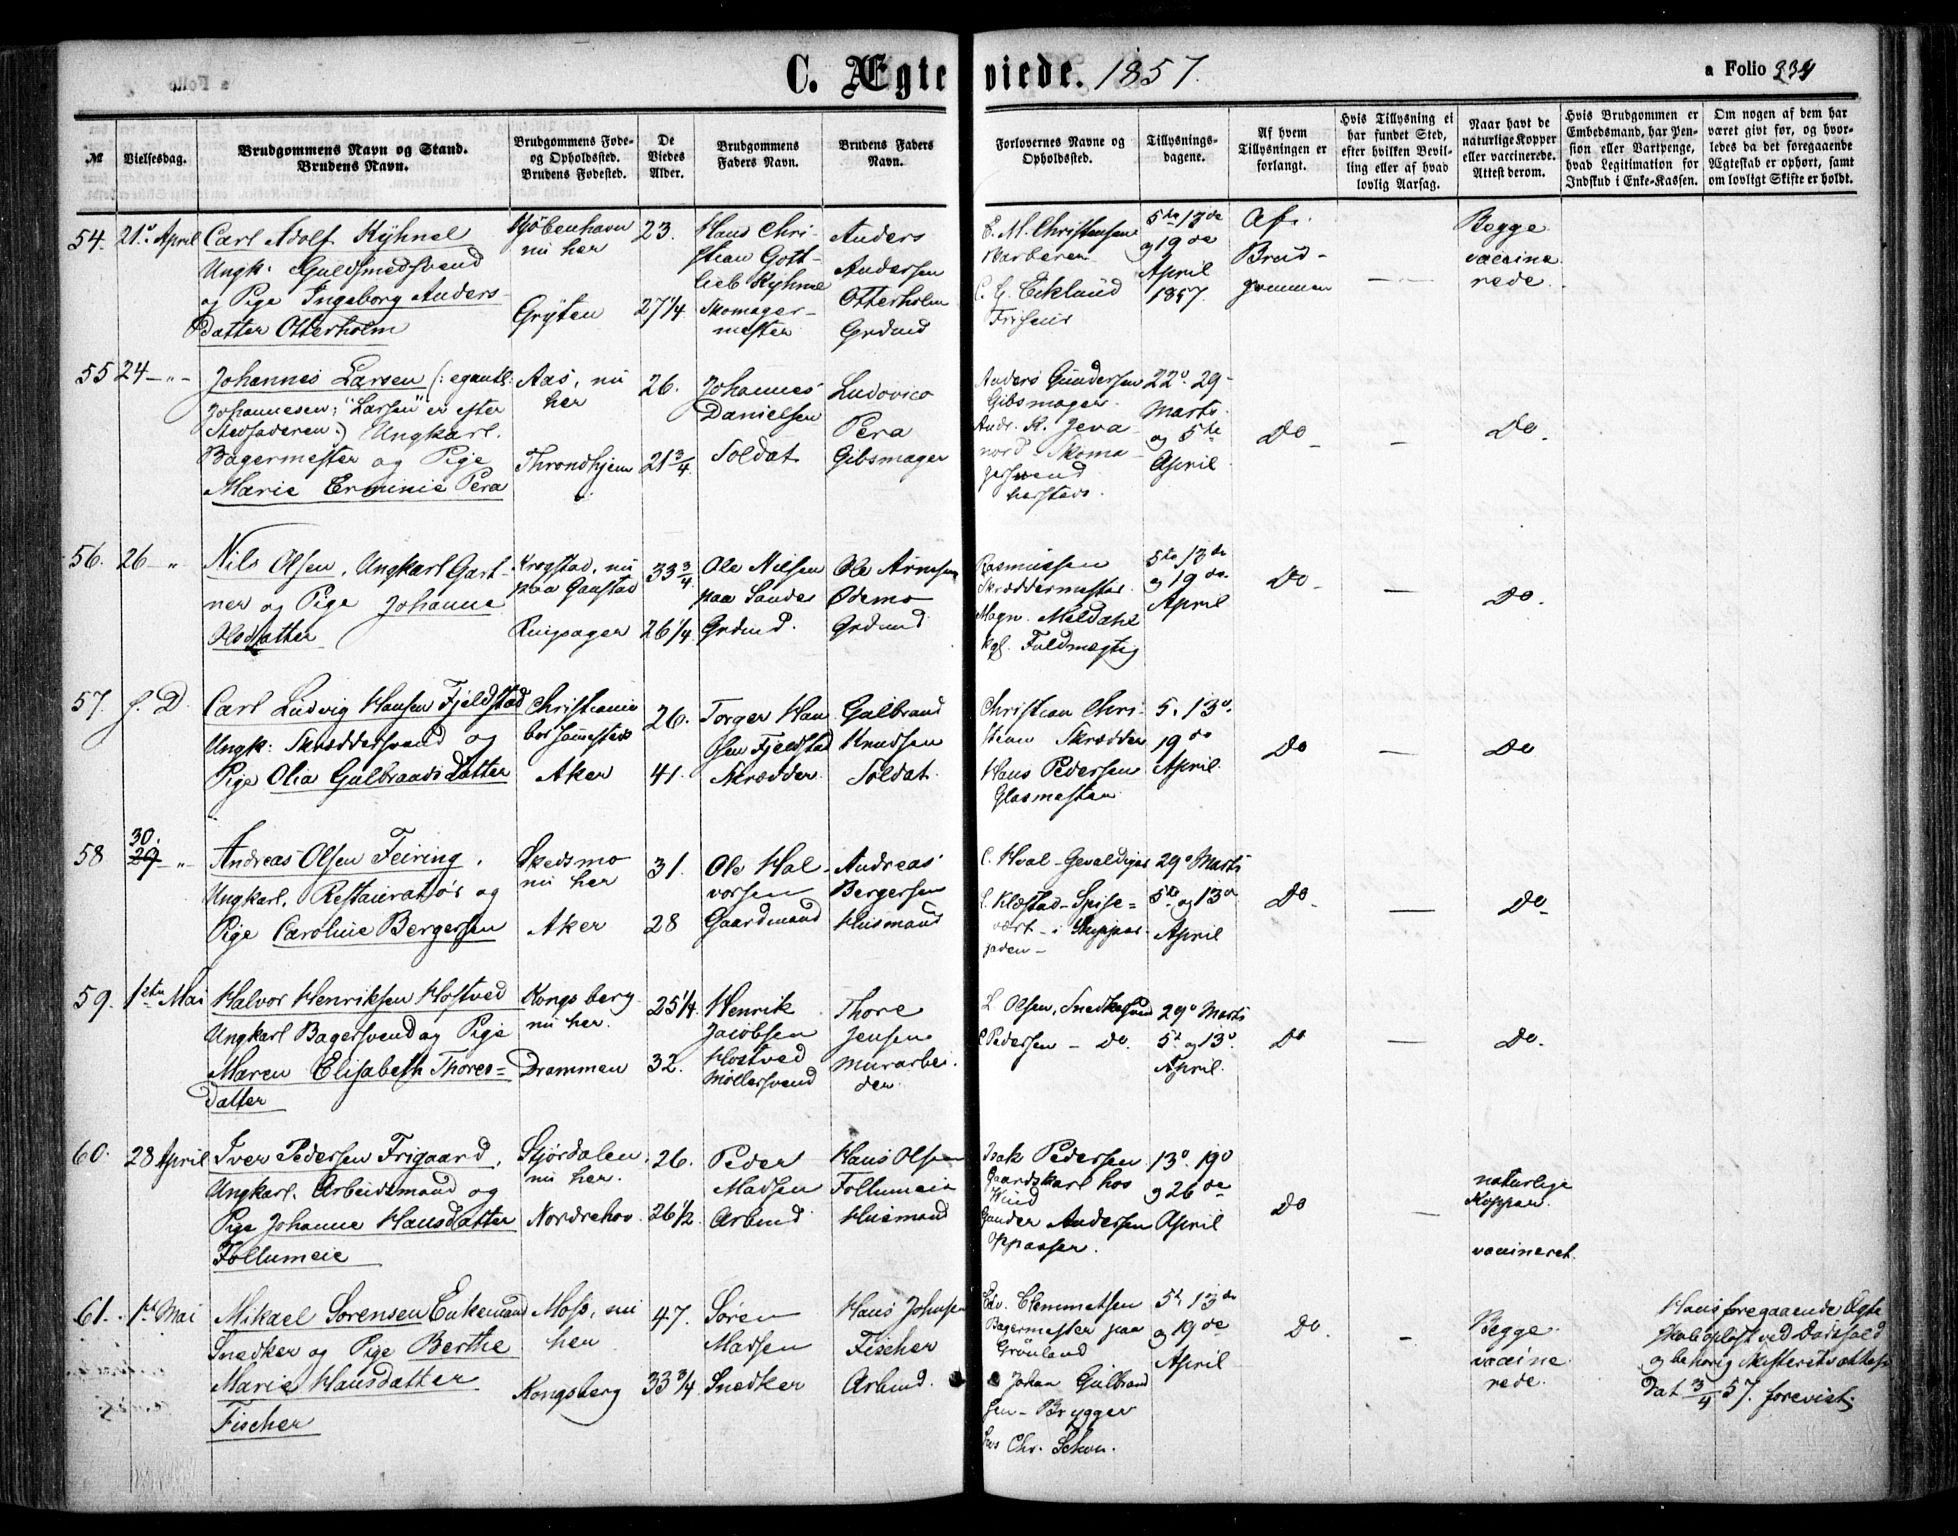 C. Ægteviede. 1857.
a Folio 234
№
Vielsesdag.
Brudgommens Navn og Stand.
Brudens Navn.
Brudgommens Føde-
og Opholdssted.
Brudens Fødested.
De
Viedes
Alder.
Brudgommens
Faders Navn.
Brudens Faders
Navn.
Forlovernes Navne og
Opholdssted.
Tillysnings-
dagene.
Af hvem
Tillysningen er
forlangt.
Hvis Tillysning ei
har fundet Sted,
efter hvilken Bevil-
ling eller af hvad
lovlig Aarsag.
Naar havt de
naturlige Kopper
eller vaccinerede.
Attest derom.
Hvis Brudgommen er
Embedsmand, har Pen-
sion eller Vartpenge,
hvad Legitimation for
Indskud i Enke-Kassen.
Om nogen af dem har
været givt før, og hvor-
ledes da det foregaaende
Ægteskab er ophørt, samt
om lovligt Skifte er holdt.
54.
21de April
Carl Adolf Kyhnel
Ungk. Guldsmedsvend
og Pige Ingeborg Anders-
datter Otterholm
Kjöbenhavn
nu her
Gryten
23.
27 1/4
Hans Chri-
stian Gott-
lieb Kyhnel
Skomager-
mester
Anders
Andersen
Otterholm
Grdmd
E. M. Christensen
Barberer
C. G. Ecklund
Friseur
5te 13de
og 19de
April
1857.
Af
Brud-
gommen
—
Begge
vaccine
rede.
55
24 – " –
Johannes Larsen (: egentl:
Johannesen; "Larsen" er efter
Stedfaderen:) Ungkarl.
Bagermester og Pige
Marie Erminie Pera
Aas, nu
her
Throndhjem
26.
21 3/4
Johannes
Danielsen
Soldat
Ludovico
Pera
Gibsmager
Anders Gundersen
Gibsmager
Andr. K. Jeva-
nord Skoma-
gersvend
hersteds.
22de 29
Marts
og 5te
April
Do
—
Do.
56.
26 – "
Nils Olsen, Ungkarl Gart-
ner og Pige Johanne
Olsdatter
Krogstad, nu
paa Gaustad
Ringsager
33 3/4
26 1/4
Ole Nilsen
paa Sander
Grdmd.
Ole Arnesen
Ödemo
Grdmd
Rasmussen
Skræddermester
Magn. Meldahl
kgl. Fuldmægtig
5te 13de
og 19de
April
Do
—
Do.
57.
s. D.
Carl Ludvig Hansen Fjeldstad
Ungk: Skræddersvend og
Pige Olia Gulbrandsdatter
Christiania
bor sammesteds
Aker
26.
41.
Torger Han
sen Fjeldstad
Skrædder
Gulbrand
Knudsen
Soldat.
Christian Chri-
stian Skrædder
Hans Pedersen
Glasmester
5. 13de
19de
April.
Do
—
Do
58
30.
29 – "
Andreas Olsen Feiring.
Ungkarl. Restauratör og
Pige Caroline Bergersen
Skedsmo
nu her
Aker
31.
28
Ole Hal-
vorsen
Gaardmand
Andreas
Bergersen
Husmand
C. Hval – Gevaldiger
L. Klæstad – Spise=
vært – i Skipper
gaden –
29de Marts
5te og 13de
April
Do
—
Do
59.
1ste Mai
Halvor Henriksen Hostved
Ungkarl Bagersvend og Pige
Maren Elisabeth Thores=
datter
Kongsberg
nu her.
Drammen
25 1/4
32.
Henrik
Jacobsen
Hostved
Møllersvend
Thore
Jensen
Murarbei-
der.
L. Olsen, Snedkersvend
C Pedersen – Do.
29de Marts
5te og 13de
April.
Do
—
Do.
60.
28 April
Iver Pedersen Frigaard,
Ungkarl. Arbeidsmand og
Pige Johanne Hansdatter
Follumeie
Stjördalen
nu her.
Nordrehov
26.
26 1/2
Peder
Madsen
Arbmd
Hans Olsen
Follumeie
Husmand
Isak Pedersen
Gaardskarl hos
Gunder Andersen
Oppasser.
13de 19de
og 26de
April
Do
—
naturlige
Kopper.
vaccineret.
61.
1ste Mai
Mikael Sörensen Enkemand
Snedker og Pige Berthe
Marie Hansdatter
Fischer
Moss, nu
her
Kongsberg
47.
33 3/4
Sören
Madsen
Snedker
Hans Johnsen
Fischer
Arbmd.
Edv. Clemmetsen
Bagermester paa
Grönland
Johan Gulbrand
sen – Brygger
hos Chr. Schou.
5te 13de
og 19de
April
Do.
–
Begge
vaccine
rede.
Hans foregaaende Ægte
skab oplöst ved Dødsfald
og behørig Skifteretsattest
dat 3/4 57. forevist.